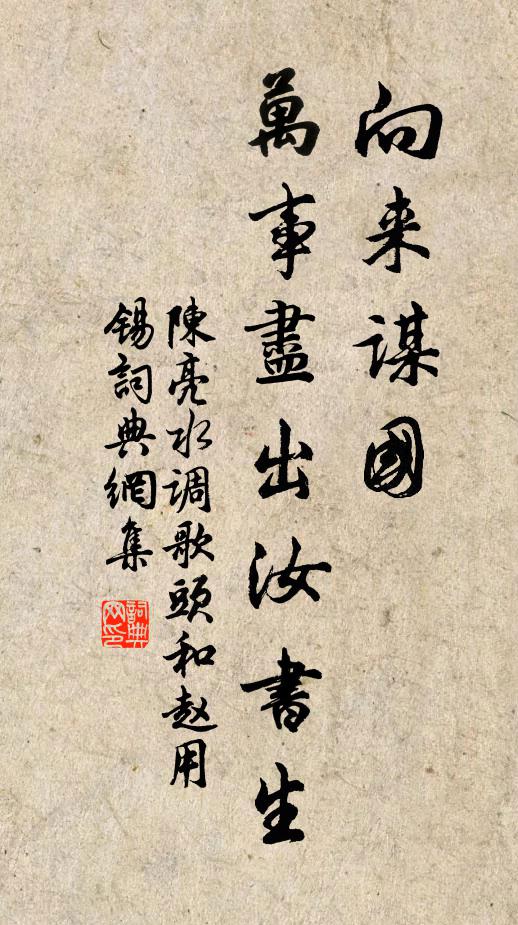 向来謀國
萬事盡出汝書生
陳亮水调歌頭和赵用
锡詞典網集
詞典
网印